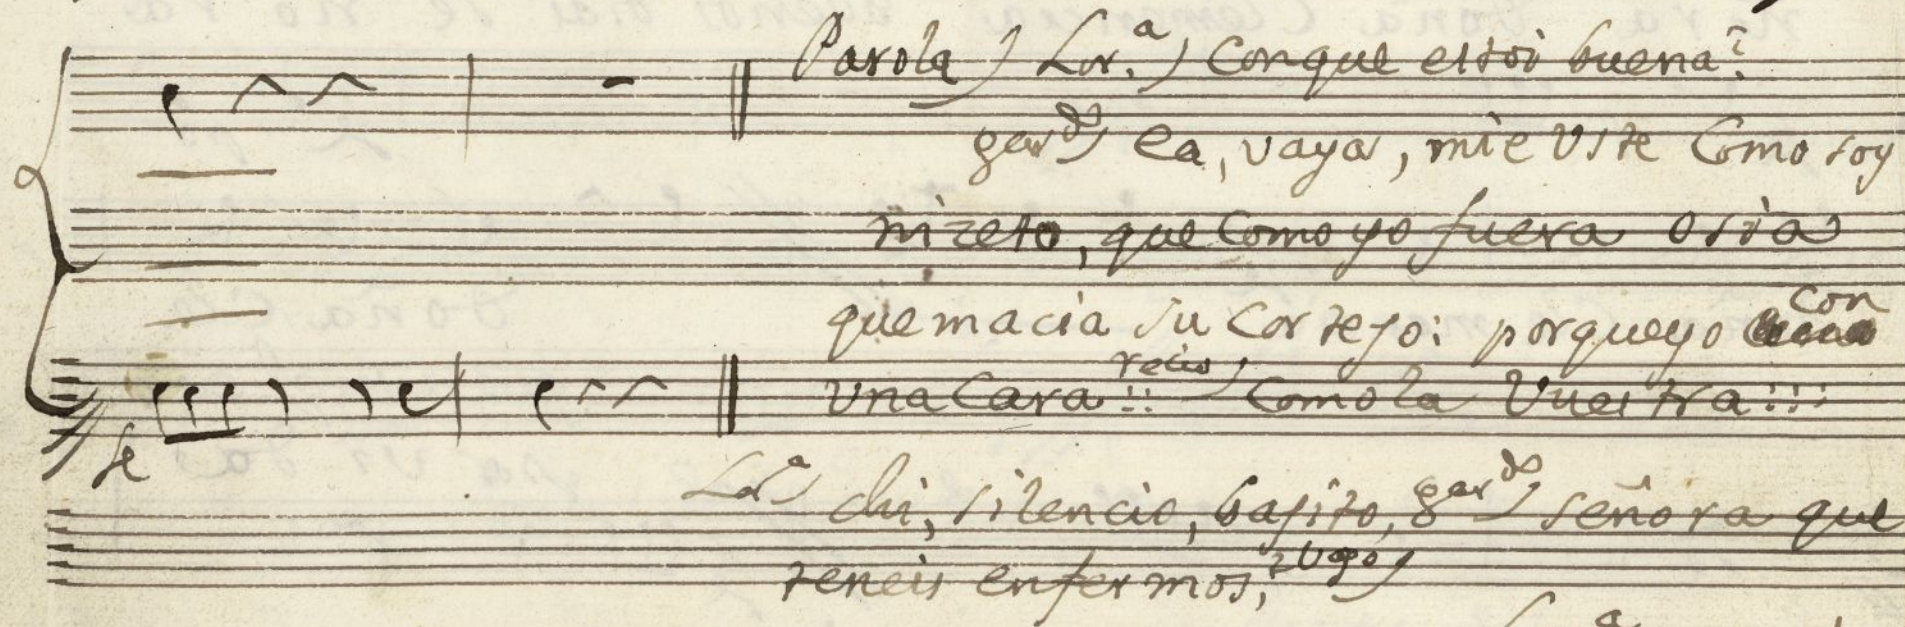 Parola) Lor.ª) Conque estoi buena?
gardº) ea, vaya, mie Uste Como soy
nizeto, que Como yo fuera osia
quemacia su Cortejo: porqueyo con
recio)
una Cara::: Comola Vuestra:::
Lorª) chi, silencio, bajito, gardº) señora que
teneis enfermos,?